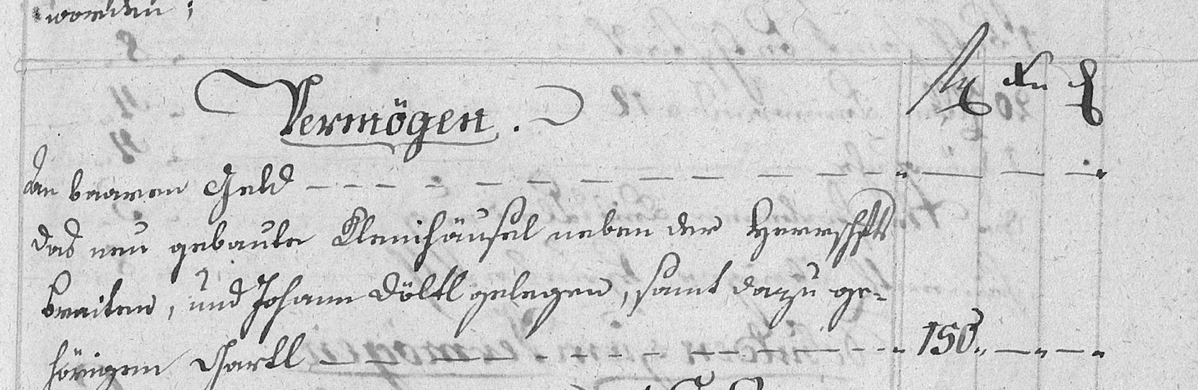 worden;
fl xr ₰
Vermögen.
An baaren Geld — — — — — — — — — — „ — — — „
das neu gebaute Kleinhäusel neben der Herrschfts
breiten, und Johann Döltl gelegen, samt dazu ge-
hörigen Gartl — — — — — — — „ 150„ — „ — „